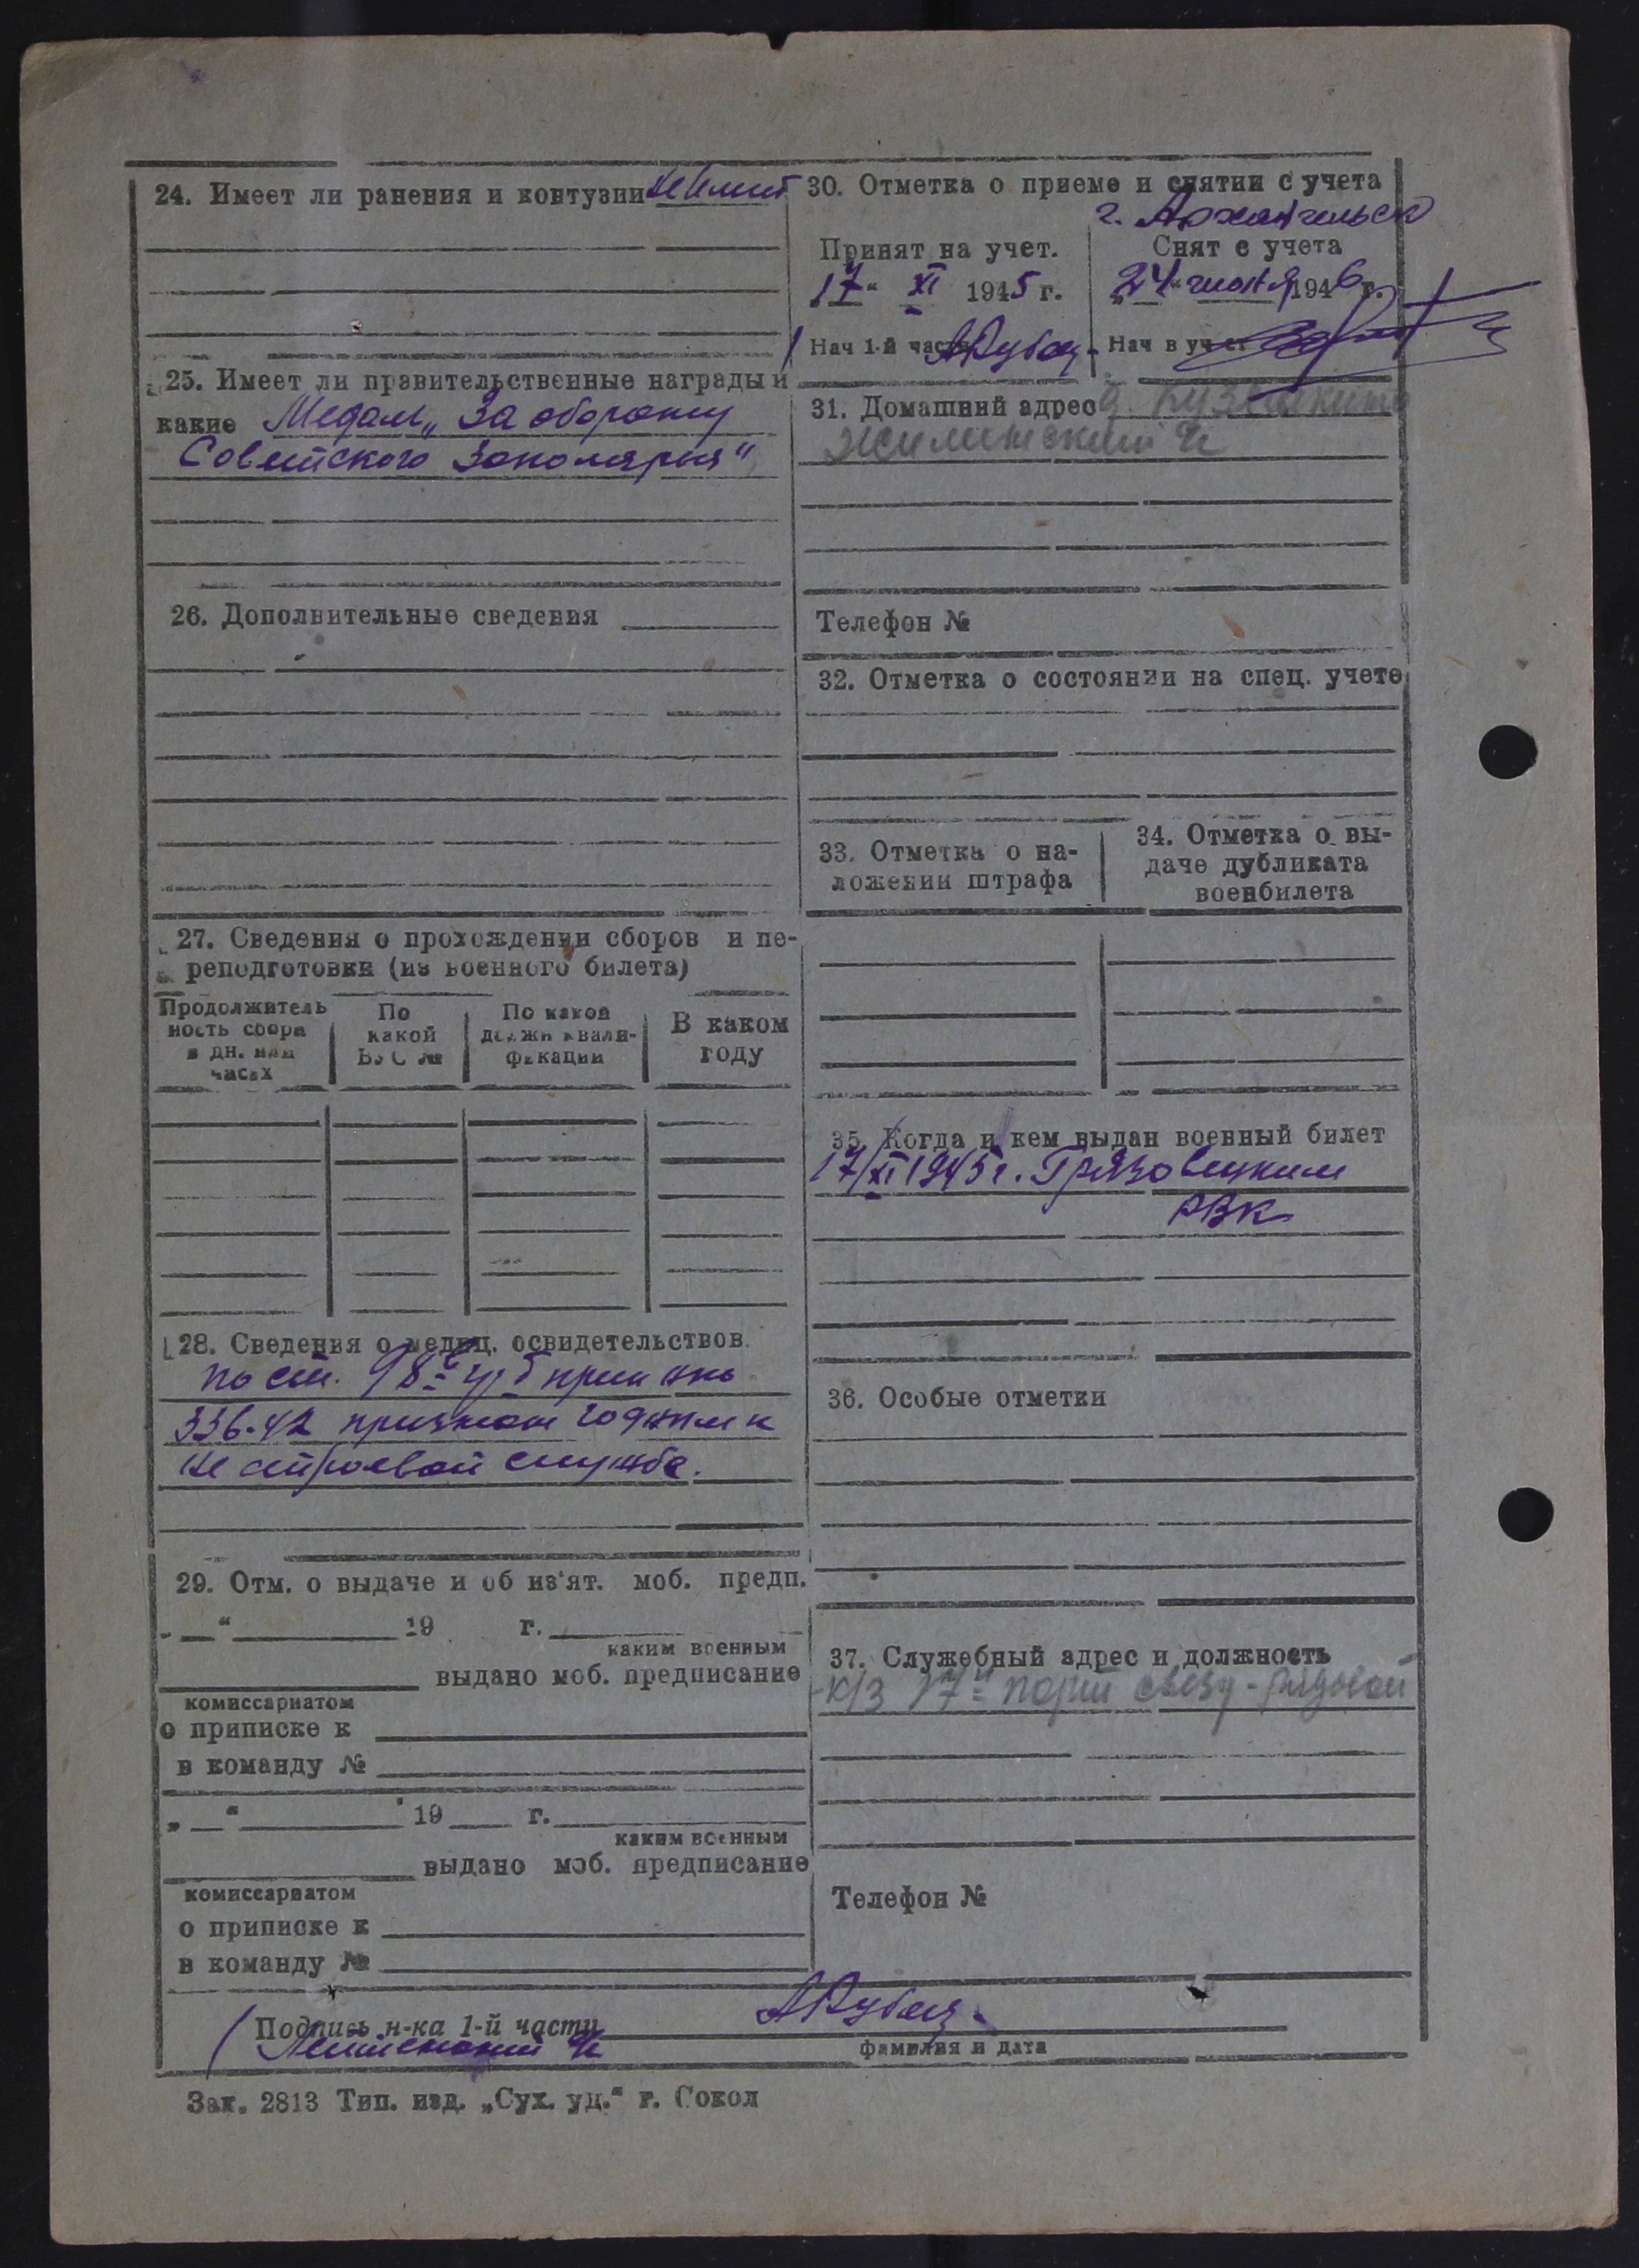 24. Имеет ли ранения и контузии не имеет
25. Имеет ли правительственные награды и
какие Медаль „За оборону
Советского Заполярья"
26. Дополнительные сведения
27. Сведения о прохождении сборов и пе-
реподготовки (из военного билета)
Продолжитель
ность сбора
в дн. или
часах
По
какой
ВУС №
По какой
должн квали-
фикации
В каком
году
28. Сведения о медец. освидетельствов.
По ст. 98 гр. приказ
336-42 признан годным к
не строевой службе.
29. Отм. о выдаче и об из'ят. моб. предп.
„ " 19 г.
каким военным
выдано моб. предписание
комиссариатом
о приписке к
в команду №
„ " 19 г.
каким военным
выдано моб. предписание
комиссариатом
о приписке к
в команду №
30. Отметка о приеме и снятии с учета
г. Архангельск
Принят на учет.
17 " XI 1945 г.
Нач 1-й части
Снят с учета
„24" июня 1946 г.
Нач в учет
31. Домашний адрес д.
Телефон №
32. Отметка о состоянии на спец. учете
33. Отметка о на-
ложении штрафа
34. Отметка о вы-
даче дубликата
военбилета
35. Когда и кем выдан военный билет
17/XI 1945 г. Грязовецким
РВК
36. Особые отметки
37. Служебный адрес и должность
к/з 17й рядовой
Телефон №
Подпись н-ка 1-й части
фамилия и дата
Зак. 2813 Тип. изд. „Сух. уд." г. Сокол